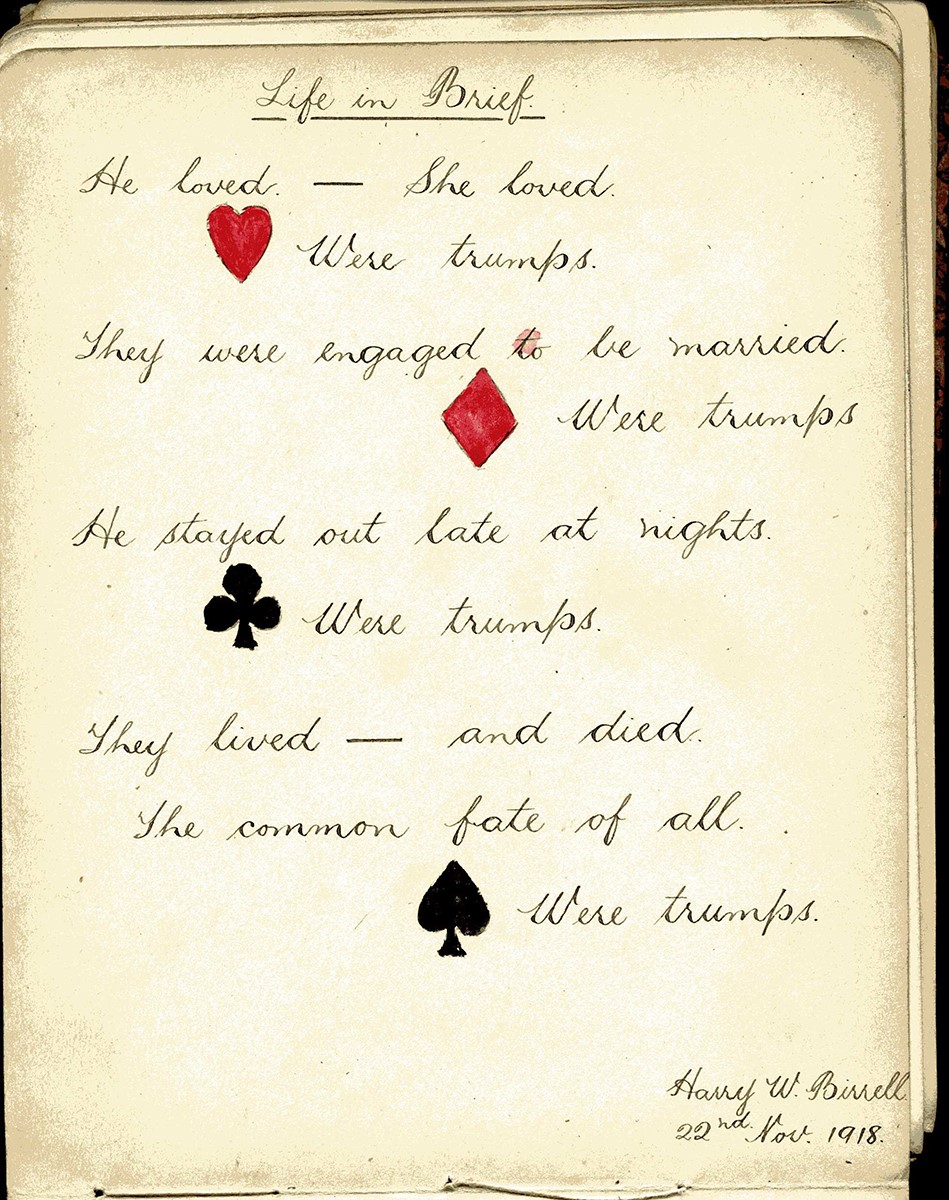 Life in Brief.
He loved. — She loved.
♥ Were trumps.
They were engaged to be married.
♦ Were trumps
He stayed out late at nights.
♣ Were trumps.
They lived — and died.
The common fate of all.
♠ Were trumps.
Harry W. Birrell
22nd Nov. 1918.